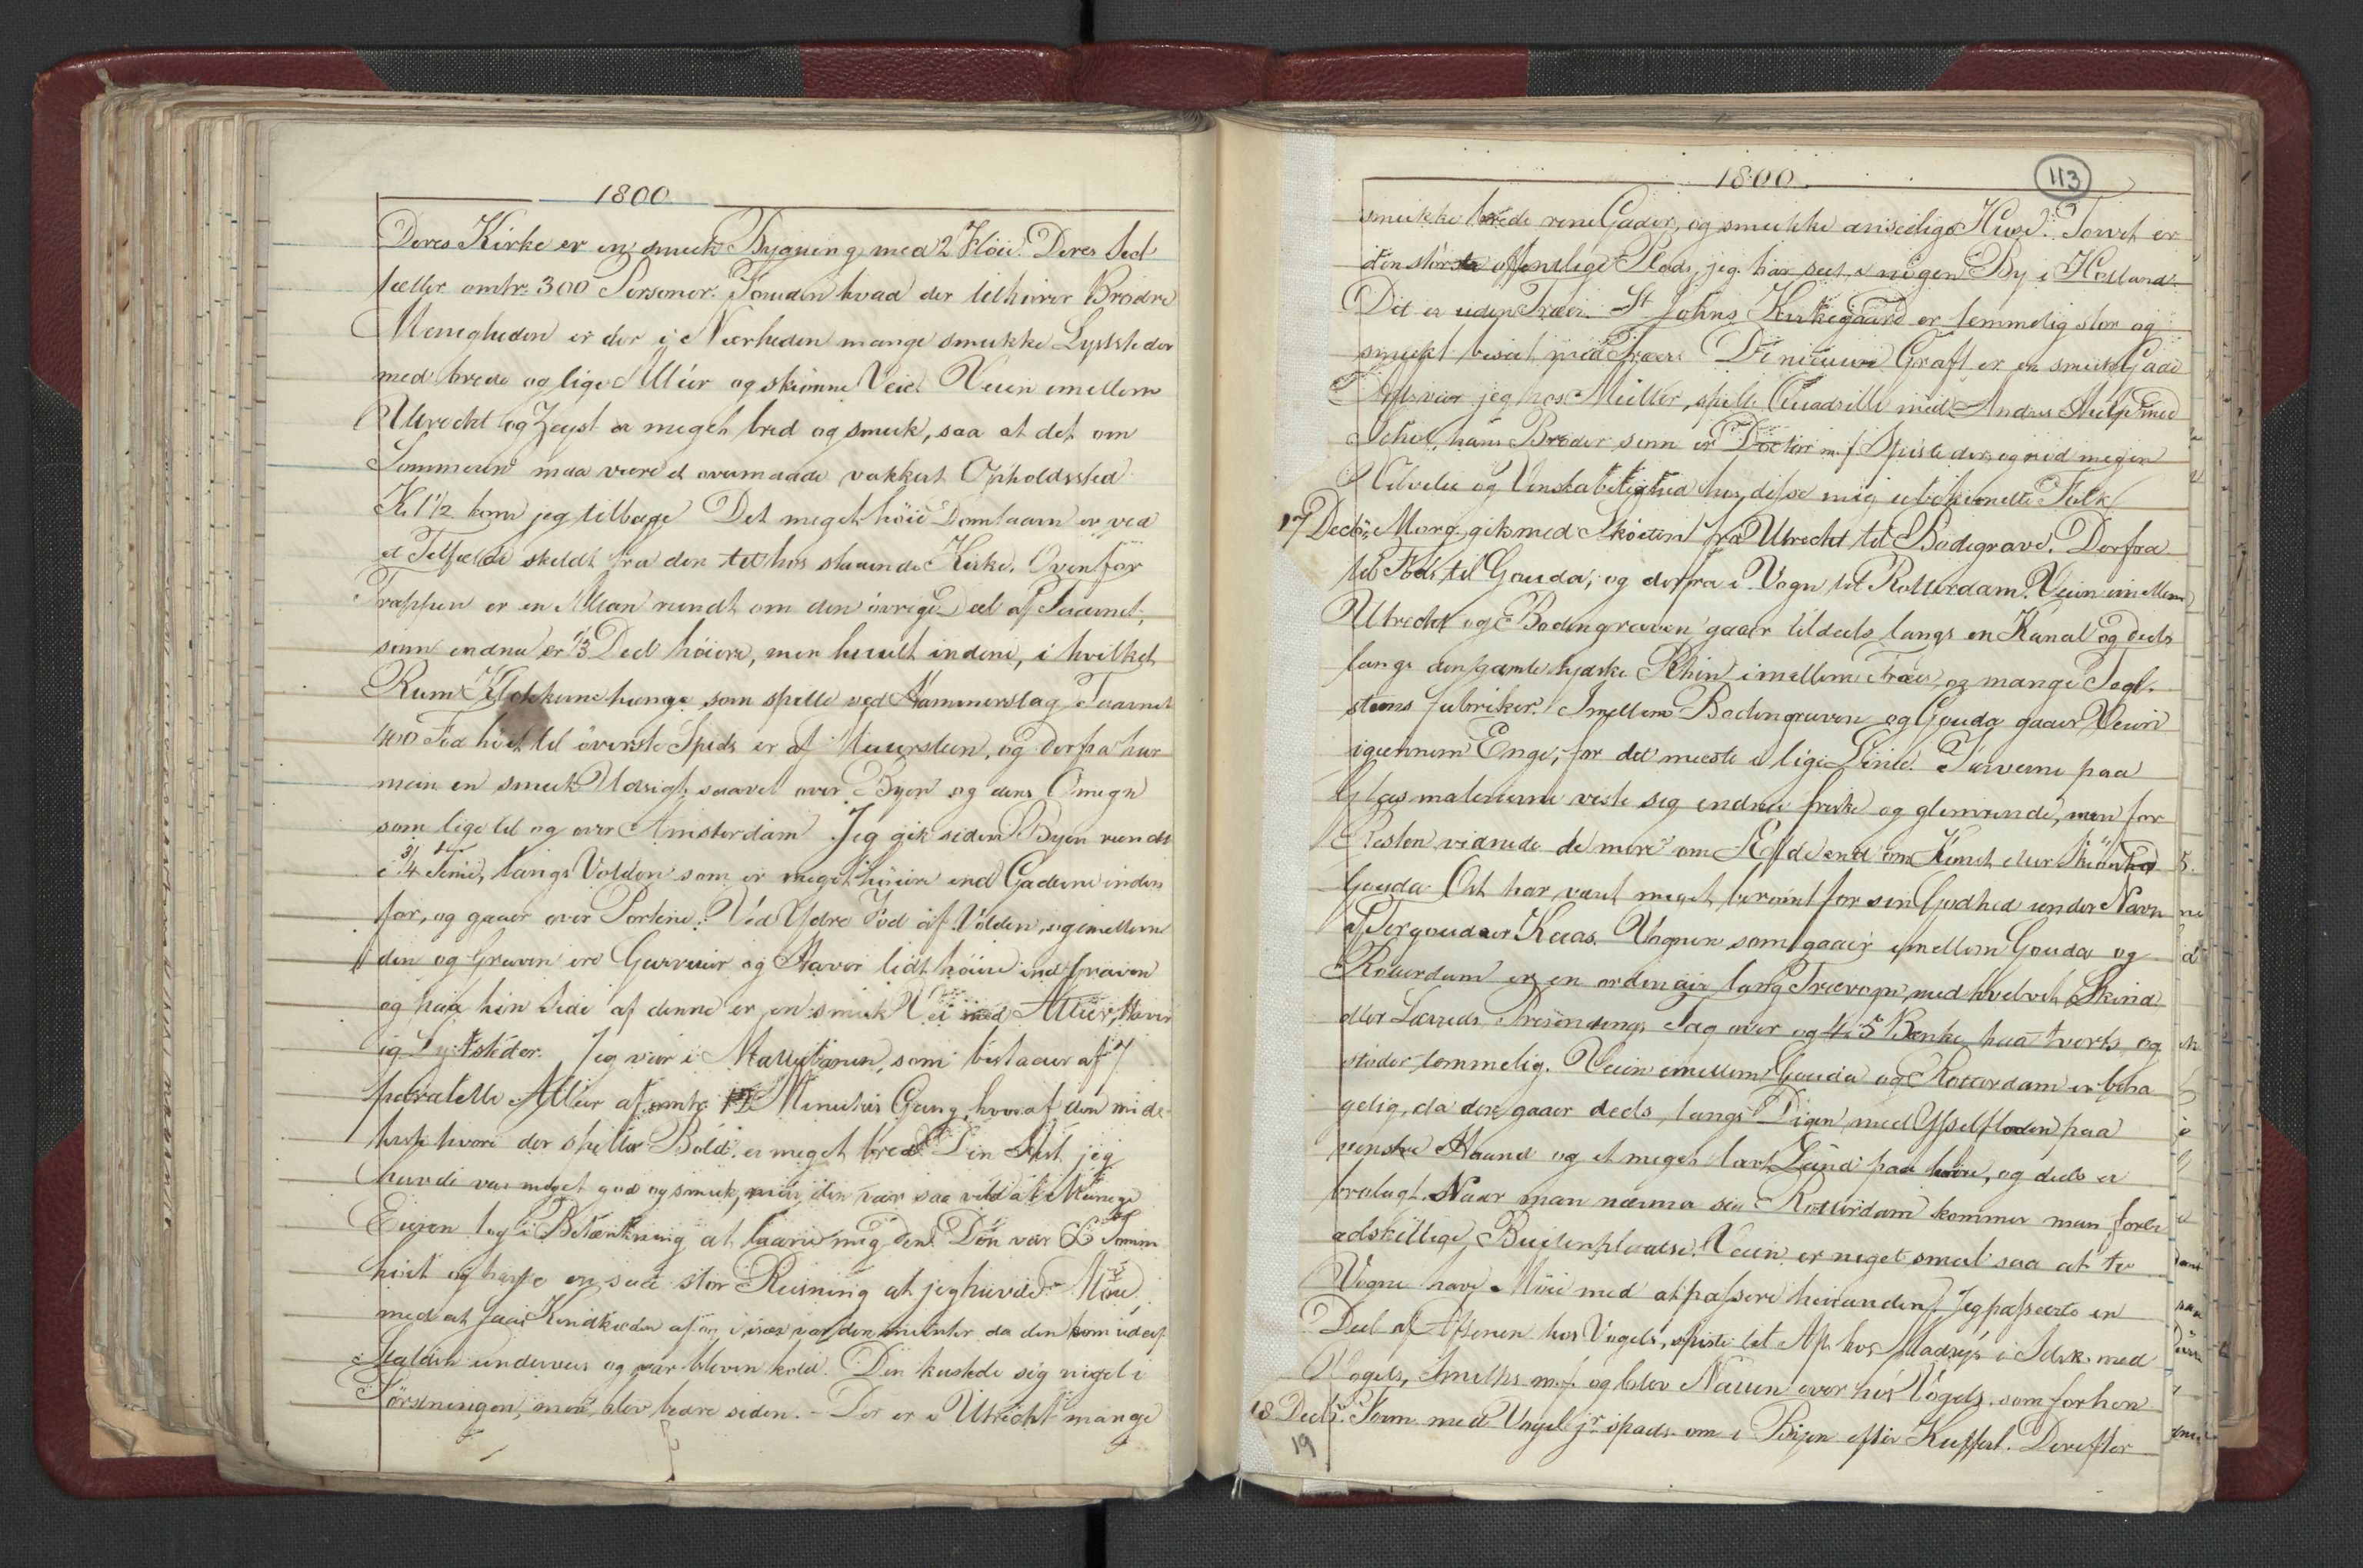 1800
Deres Kirke er en smuck Bygning med 2 Flöie. Deres Sect
tæller omtr. 300 Personer. Foruden hvad der tilhörer Brödre
Menigheden er der i Nærheden mange smukke Lyststeder
med brede og lige Alléer og skiönne Veie. Veien imellem
Utrecht og Zeyst er meget bred og smuk, saa at det om
Sommeren maa være et overmaade vakkert Opholdssted
Kl 1½ kom jeg tilbage Det meget höie Domtaarn er ved
et Tilfælde skildt fra den tæthos staaende Kirke. Oven for
Trappen er en Altan rundt om den övrige Deel af Taarnet,
som endnu er ⅓ Deel höiere, men huult indeni, i hvilket
Rum Klokkerne hænge som spille ved Hammerslag Taarnet
400 Fod höit til överste Spids er af Muursteen, og derfra har
man en smuk Udsigt saavel over Byen og dens Omegn
som lige til og over Amsterdam Jeg gik siden Byen rundt
i ¾ Time, langs Volden som er meget höiere end Gaderne inden
for, og gaaer over Portene. Ved Ydre Fod af Volden, og imellem
den og Graven ere Garverier og Haver lidt höiere end Graven
og paa hin Side af denne er en smuk Vei med Alléer, Haver
og Lyststeder. Jeg var i Maliebanen, som bestaaer af 7
paralelle Alléer af omtr. Minuters Gang, hvoraf den mid-
terste hvori der spilles Bold, er meget bred Den Hest jeg
havde var meget god og smuk, men den var saa vild at
Eieren tog i Betænkning at laane mig den. Den var Tomm
höit og havde en saa stor Reisning at jeg havde Möie
med at faae Kindkæden af og især var den munter da den kom ud af
Stalden underveis og var bleven kold. Den kastede sig noget i
Förstningen, men blev bedre siden. - Der er i Utrecht mange
1800
113
smukke brede rene Gader, og smukke anseelige Huse. Torvet er
den störste offentlige Plads, jeg har seet i nogen By i Holland.
Det er uden Træer. St Johns Kirkegaard er temmelig stor og
smukt besat med Træer De nieuwe Graft er en smuk Gade
Aft. var jeg hos Müller, spilte Quadrille med Andres Hielp med
hans Broder som er Doctor m f Spiste der, og nöd megen
Velvilie og Venskabelighed hos disse mig ubekiendte Folk
17 Decbr. Morg. gik med Sköiten fra Utrecht til Bodegrave. Derfra
til Fods til Gouda, og derfra i Vogn til Rotterdam. Veien imellem
Utrecht og Bodengraven gaaer tildeels langs en Kanal og deels
langs den gamle hydske Rhin imellem Træer og mange Tegl-
steens fabriker. Imellem Bodengraven og Gouda gaaer Veien
igiennem Enge, for det meeste i lige Linie. Farverne paa
Glasmalerierne viste sig endnu friske og glimrende, men for
Resten vidnede de mere om Ælde end om Kunst eller Skiönhed
Gouda Ost har været meget berömt for sin Godhed under Navn
af Tergoudaer Kaas. Vognen som gaaer imellem Gouda og
Rotterdam er en ordinair lang Trævogn med hvelvet Skind
eller Lærreds Presendings Tag over og 4 à 5 Bænke paa tværts og
stöder temmelig. Veien imellem Gouda og Rotterdam er beha
gelig, da den gaaer deels langs Digen med Ysselfloden paa
venstre Haand og et meget lavt Land paa höire, og deels er
brolagt. Naar man nærmer sig Rotterdam kommer man forbi
adskillige Buitenplaatse. Veien er meget smal saa at to
Vogne have Möie med at passere hinanden. Jeg passerte en
Deel af Aftenen hos Vogels, spiste til Aft. hos Madsys i Selsk. med
Vogels, Smiths m.f. og blev Natten over hos Vogels som forhen
18 Decbr. Form. med Vogel jr. spads. om i Byen efter Kuffert. Derefter
19